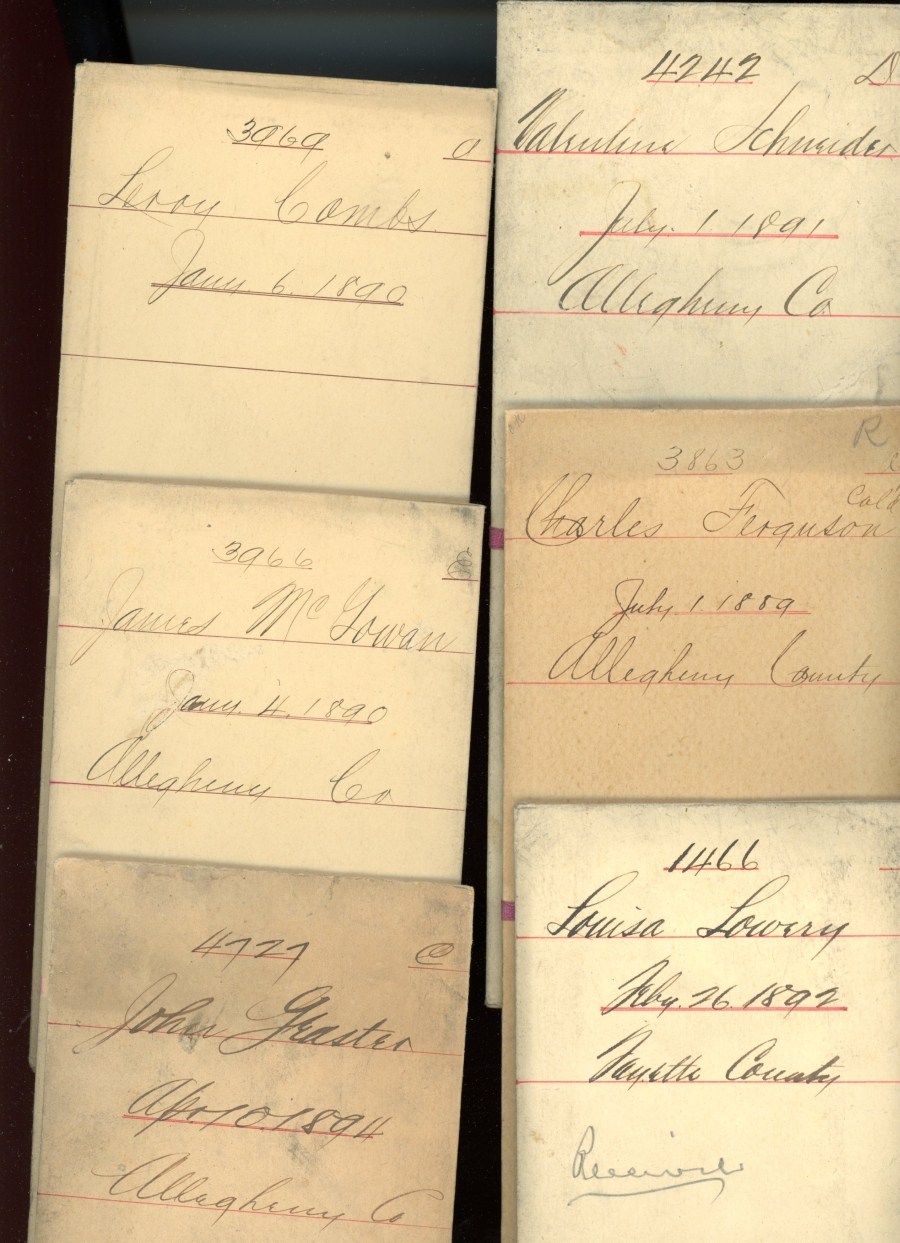 3969
Leroy Combs.
Jany 6. 1890
3966
James McGowan
Jany. 4. 1890
Allegheny Co
4727 C
John Geaster
Apr 10. 1894
Allegheny Co
4242 D
Valentine Schneider
July. 1. 1891
Allegheny Co.
R
3863
Col'd
Charles Ferguson
July 1. 1889
Allegheny County
1466
Louisa Lowery
Feby. 26. 1892
Fayette County
Received